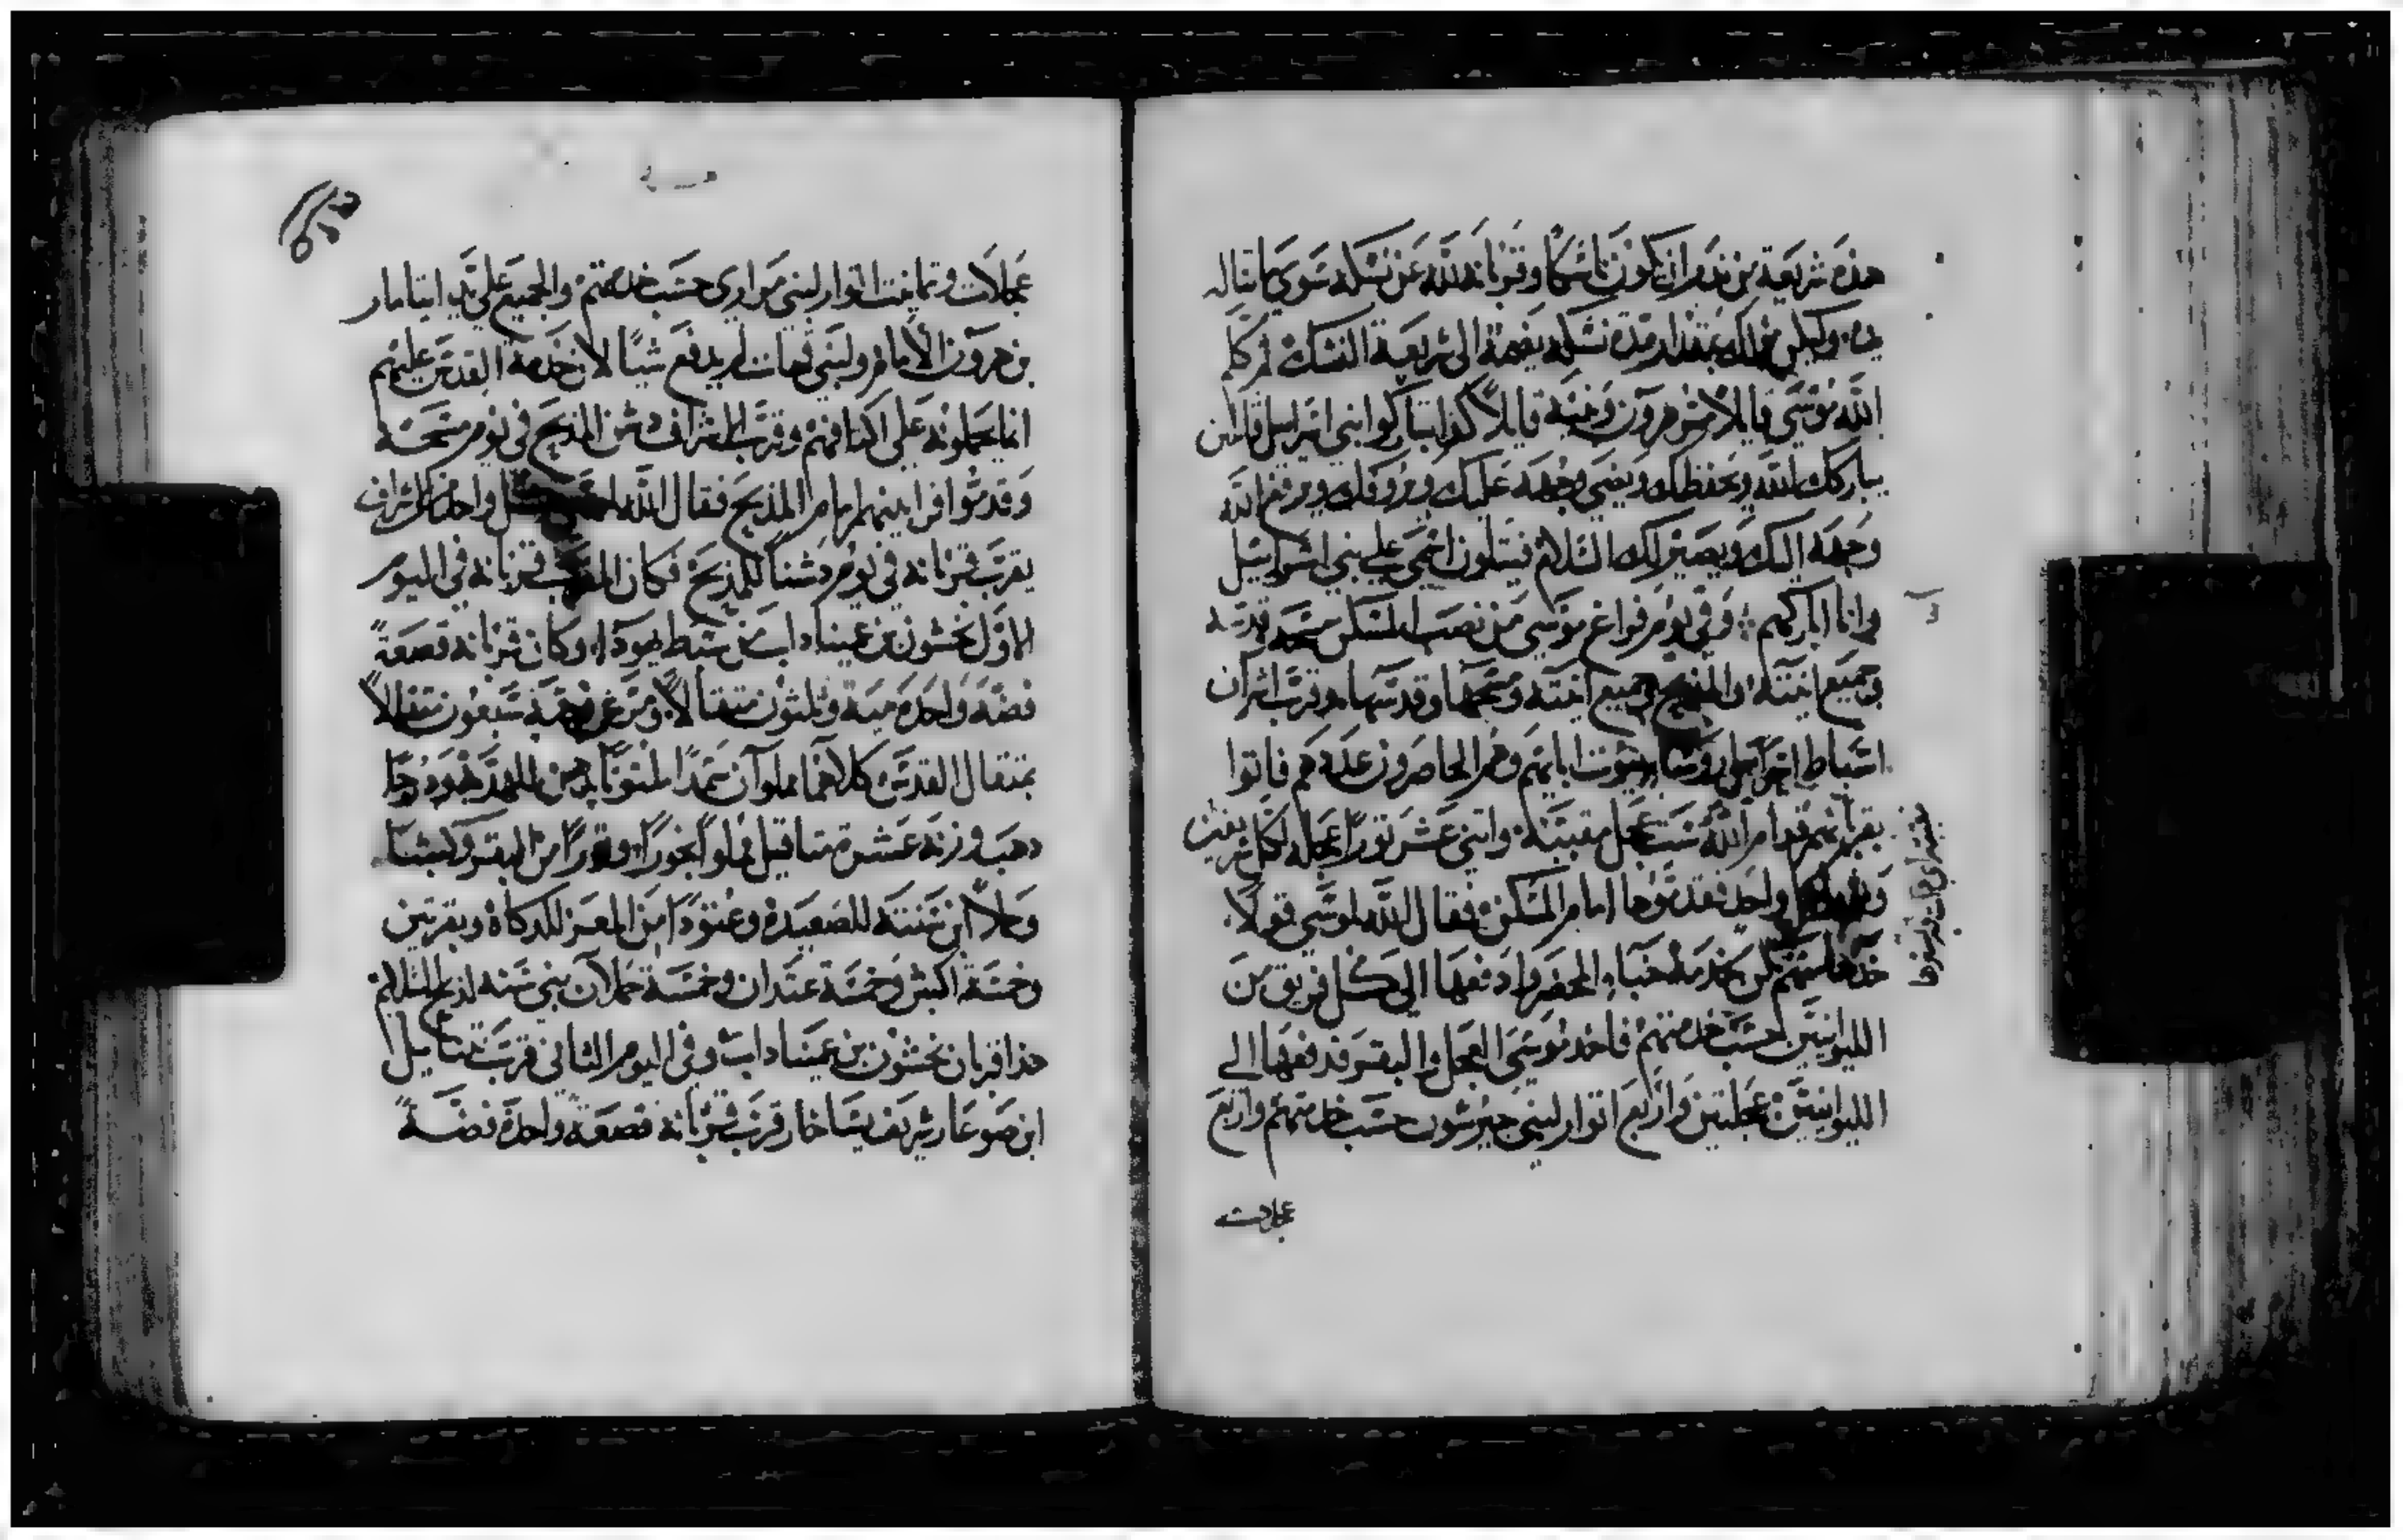 هذه شريعة من نذر ان يكون ناسكا وقربانه لله عن نسكه سوى ما تناله
يده وليكن من ذلك بمقدار مدة نسكه يضمه الى شريعة النسك ثم كلم
الله موسى قايلا مر هرون وبنيه قايلا كذا تباركوا بني اسرايل قايلين
يباركك الله ويحفظك ويضي وجهه عليك ويروفك ويرفع الله
وجهه اليك ويصير لك السلام فيتلون اسمي على بني اسرايل
وانا اباركهم وفي يوم فراغ موسى من نصب المسكن مسحه وقدسه
وجميع انيته والمذبح وجميع انيته ومسحها وقدسها وقرب اشراف
اسباط اسرايل روسا بيوت ابايهم وهم الحاضرون عددهم فاتوا
بقربانهم قدام الله ست عجل مقببة واثني عشر ثورا عجلة لكل شريفين
وثور لكل واحد فقدموها امام المسكن فقال الله لموسى قولا
خذها منهم لخدمة خباء المحضر وادفعها الى كل فريق من
الليوانيين حسب خدمتهم فاخذ موسى العجل والبقر فدفعها الى
الليوانيين عجلتين واربع اثوار لبني جيرشون حسب خدمتهم واربع
عجلات
عجلات وثمانية اثوار لبني مراري حسب خدمتهم والجميع على يد ايتامار
بن هرون الامام ولبني قهات لم يدفع شيا لان خدمة القدس عليهم
انما يحملونه على اكتافهم وقرب الاشراف دشن المذبح في يوم مسحه
وقدموا قرابينهم امام المذبح فقال الله لموسى كل واحد من الاشراف
يقرب قربانه في يوم دشنا للمذبح فكان المقرب قربانه في اليوم
الاول نحشون بن عميناداب من سبط يهودا وكان قربانه قصعة
فضة واحدة مية وثلثون مثقالا ومزرق فضة سبعون مثقالا
بمثقال القدس كلاهما مملوان سمدا ملتوتا بدهن للهدية ودرجا
دهب وزنه عشرة مثاقيل مملوا بخورا وثورا من البقر وكبشا
وحملا ابن سنته للصعيدة وعتودا من المعز للدكاة وبقرتين
وخمسة اكبش وخمسة عتدان وخمسة حملان بني سنه لذبح السلامة
هذا قربان نحشون بن عميناداب وفي اليوم الثاني قرب نتنايل
ابن صوعار شريف يساخار قرب قربانه قصعة واحدة فضة